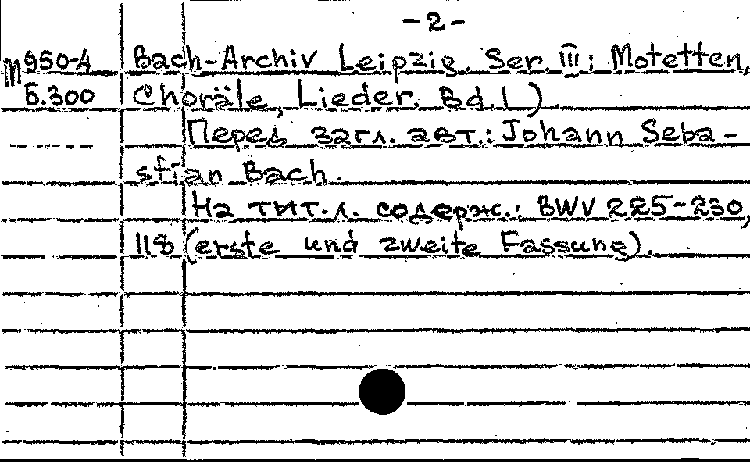 -2-
М950-А Bach-Archiv Leipzig. Ser. III: Motetten,
Б.300 Choräle, Lieder. Bd.1)
Перед загл. авт.: Johann Seba-
stian Bach.
На тит.л. содерж.: BWV 225-230,
118 (erste und zweite Fassung).